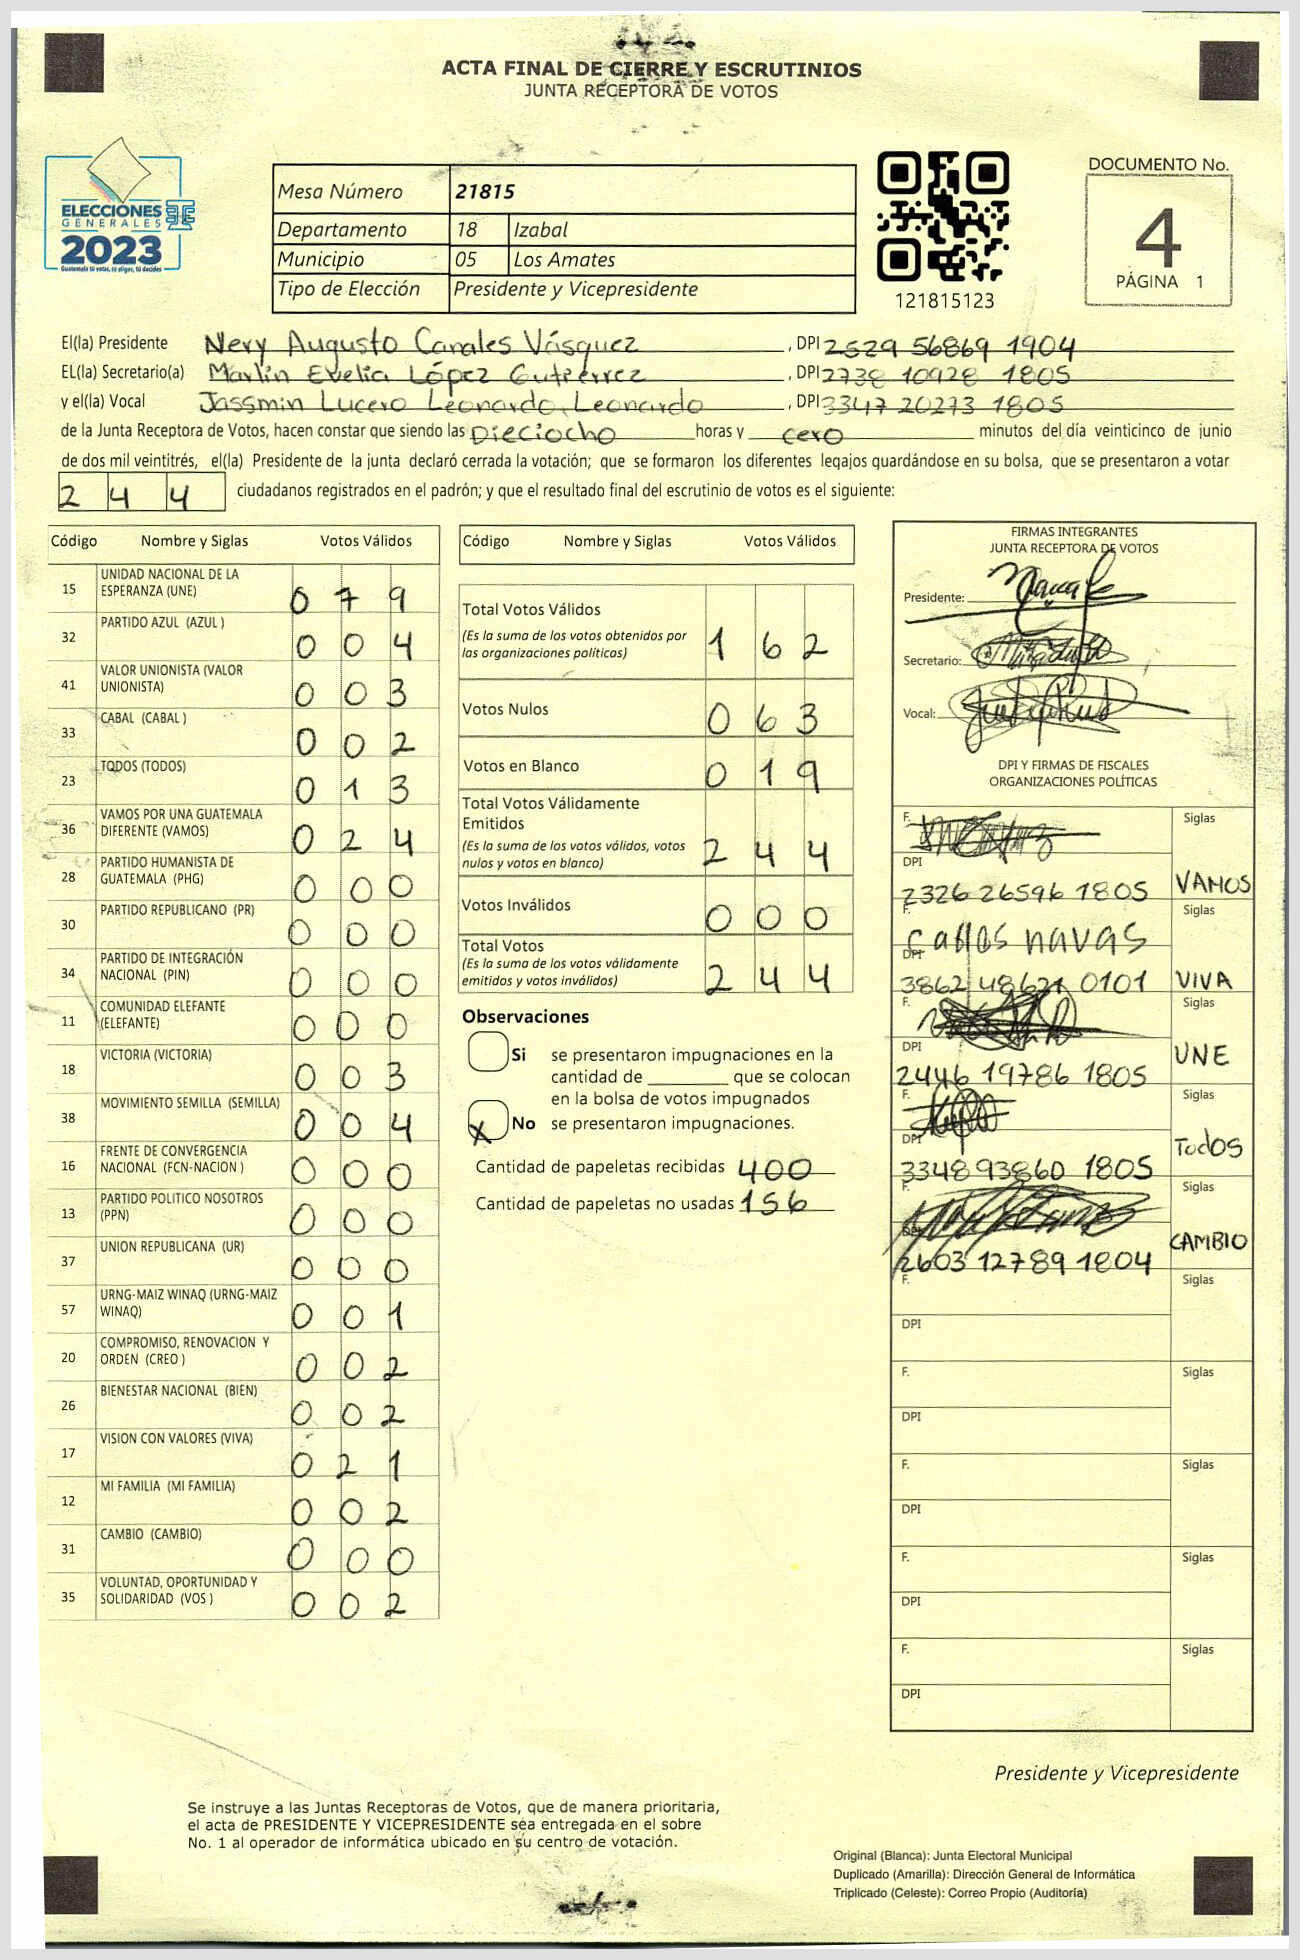 ACTA FINAL DE CIERRE Y ESCRUTINIOS
JUNTA RECEPTORA DE VOTOS
ELECCIONES
GENERALES
2023
Guatemala tú votas, tú eliges, tú decides
Mesa Número 21815
Departamento 18 Izabal
Municipio 05 Los Amates
Tipo de Elección Presidente y Vicepresidente
121815123
DOCUMENTO No.
4
PÁGINA 1
El(la) Presidente Nery Augusto Canales Vásquez, DPI 2529 56869 1904
EL(la) Secretario(a) Marlin Evelia López Gutiérrez, DPI 2738 10928 1805
y el(la) Vocal Jassmin Lucero Leonardo Leonardo, DPI 3347 20273 1805
de la Junta Receptora de Votos, hacen constar que siendo las Dieciocho horas y cero minutos del día veinticinco de junio
de dos mil veintitrés, el(la) Presidente de la junta declaró cerrada la votación; que se formaron los diferentes legajos guardándose en su bolsa, que se presentaron a votar
244 ciudadanos registrados en el padrón; y que el resultado final del escrutinio de votos es el siguiente:
Código Nombre y Siglas Votos Válidos
15 UNIDAD NACIONAL DE LA ESPERANZA (UNE) 0 7 9
32 PARTIDO AZUL (AZUL ) 0 0 4
41 VALOR UNIONISTA (VALOR UNIONISTA) 0 0 3
33 CABAL (CABAL ) 0 0 2
23 TODOS (TODOS) 0 1 3
36 VAMOS POR UNA GUATEMALA DIFERENTE (VAMOS) 0 2 4
28 PARTIDO HUMANISTA DE GUATEMALA (PHG) 0 0 0
30 PARTIDO REPUBLICANO (PR) 0 0 0
34 PARTIDO DE INTEGRACIÓN NACIONAL (PIN) 0 0 0
11 COMUNIDAD ELEFANTE (ELEFANTE) 0 0 0
18 VICTORIA (VICTORIA) 0 0 3
38 MOVIMIENTO SEMILLA (SEMILLA) 0 0 4
16 FRENTE DE CONVERGENCIA NACIONAL (FCN-NACION ) 0 0 0
13 PARTIDO POLITICO NOSOTROS (PPN) 0 0 0
37 UNION REPUBLICANA (UR) 0 0 0
57 URNG-MAIZ WINAQ (URNG-MAIZ WINAQ) 0 0 1
20 COMPROMISO, RENOVACION Y ORDEN (CREO ) 0 0 2
26 BIENESTAR NACIONAL (BIEN) 0 0 2
17 VISION CON VALORES (VIVA) 0 2 1
12 MI FAMILIA (MI FAMILIA) 0 0 2
31 CAMBIO (CAMBIO) 0 0 0
35 VOLUNTAD, OPORTUNIDAD Y SOLIDARIDAD (VOS ) 0 0 2
Código Nombre y Siglas Votos Válidos
Total Votos Válidos 1 6 2
(Es la suma de los votos obtenidos por
las organizaciones políticas)
Votos Nulos 0 6 3
Votos en Blanco 0 1 9
Total Votos Válidamente
Emitidos
(Es la suma de los votos válidos, votos
nulos y votos en blanco) 2 4 4
Votos Inválidos 0 0 0
Total Votos
(Es la suma de los votos válidamente
emitidos y votos inválidos) 2 4 4
Observaciones
Si se presentaron impugnaciones en la
cantidad de ________ que se colocan
en la bolsa de votos impugnados
X No se presentaron impugnaciones.
Cantidad de papeletas recibidas 400
Cantidad de papeletas no usadas 156
FIRMAS INTEGRANTES
JUNTA RECEPTORA DE VOTOS
Presidente:
Secretario:
Vocal:
DPI Y FIRMAS DE FISCALES
ORGANIZACIONES POLÍTICAS
F. Siglas
DPI
2326 26596 1805 VAMOS
F. Carlos navas Siglas
DPI
3862 48621 0101 VIVA
F. Siglas
DPI UNE
2446 19786 1805
F. Siglas
DPI Todos
3348 93860 1805
F. Siglas
DPI CAMBIO
2603 12789 1804
F. Siglas
DPI
F. Siglas
DPI
F. Siglas
DPI
F. Siglas
DPI
F. Siglas
DPI
Presidente y Vicepresidente
Se instruye a las Juntas Receptoras de Votos, que de manera prioritaria,
el acta de PRESIDENTE Y VICEPRESIDENTE sea entregada en el sobre
No. 1 al operador de informática ubicado en su centro de votación.
Original (Blanca): Junta Electoral Municipal
Duplicado (Amarilla): Dirección General de Informática
Triplicado (Celeste): Correo Propio (Auditoría)